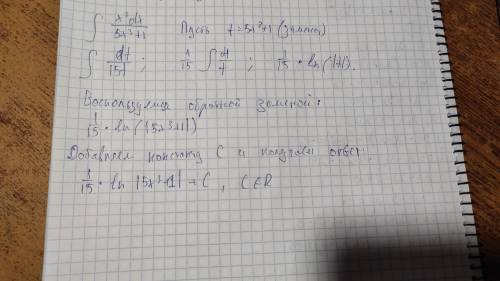 ∫ x²dx / 5x³+1 Пусть t = 5x³+1 (замена)
∫ dt / 15t ; 1/15 ∫ dt / t ; 1/15 · ln (|t|).
Воспользуемся обратной заменой:
1/15 · ln (|5x³+1|)
Добавляем константу C и получаем ответ:
1/15 · ln |5x³+1| + C, C∈R